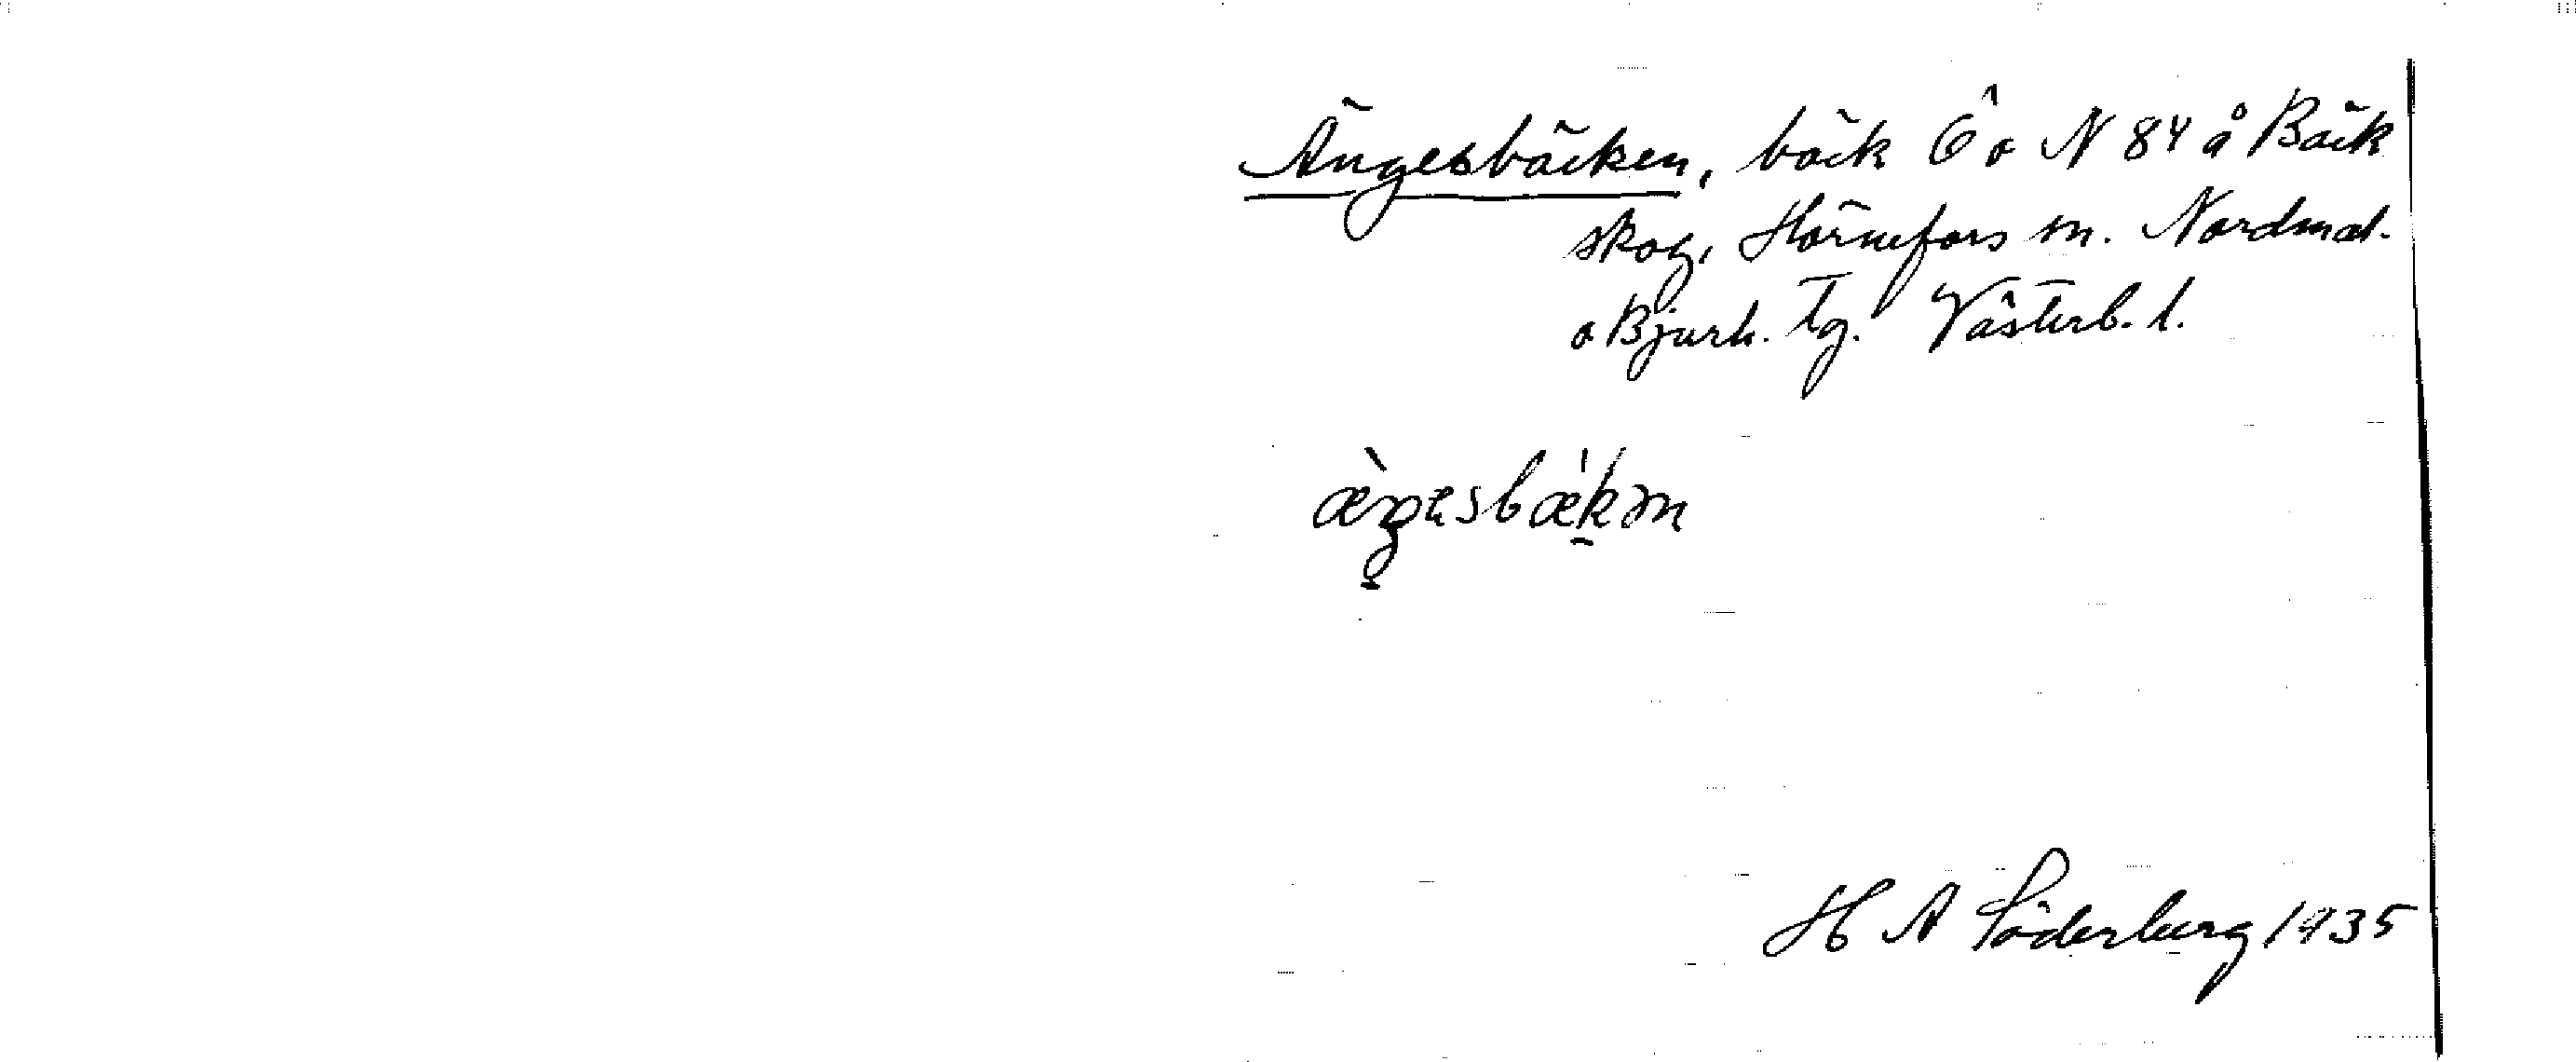 Ängesbäcken, bäck Ö o N 84 å Bäck
skog, Hörnefors sn. Nordmal.
o Bjurh. Tg. Västerb. l.
H A Söderberg 1935